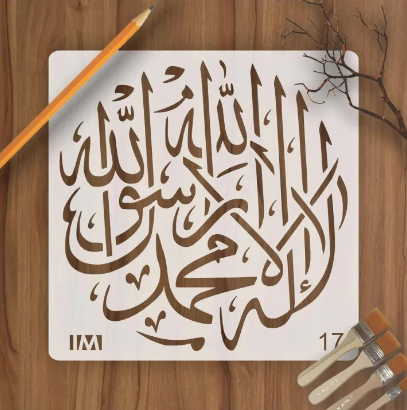 لا إله إلا الله محمد رسول الله
IM
17